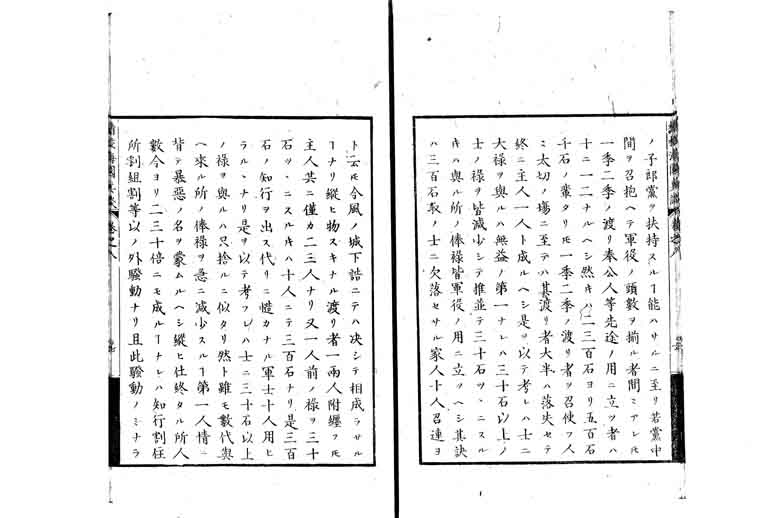 ノ子郎黨ヲ扶持スルヿ能ハサルニ至リ若黨中
間ヲ召抱ヘテ軍役ノ頭數ヲ揃ル者間ミアレ𪜈
一季二季ノ渡リ奉公人等先途ノ用ニ立ツ者ハ
十ニ一二ナルヘシ然𪜈二三百石ヨリ五百石
千石ノ輩タリ𪜈一季二季ノ渡リ者ヲ召使フ人
ミ太切ノ場ニ至テハ其渡リ者大半ハ落失セテ
終ニ主人一人ト成ルヘシ是ヲ以テ考レハ士ニ
大禄ヲ與ルハ無益ノ第一ナレハ三十石以上ノ
士ノ禄ヲ皆減少シテ推並テ三十石ツヽニスル
𪜈ハ與ル所ノ俸禄皆軍役ノ用ニ立ツヘシ其訣
ハ三百石取ノ士ニ欠落セサル家人十人召連ヨ
ト云𪜈今風ノ城下詰ニテハ决シテ相成ラサル
ヿナリ縦ヒ物スキナル渡リ者一兩人附纏フ𪜈
主人共ニ僅カ二三人ナリ又一人前ノ禄ヲ三十
石ツヽニスル𪜈ハ十人ニテ三百石ナリ是三百
石ノ知行ヲ出ス代リニ慥カナル軍士十人用ヒ
ラルヽナリ是ヲ以テ考フレハ士ニ三十石以上
ノ禄ヲ與ルハ只捨ルニ似タリ然ト雖モ數代與
ヘ來ル所ノ俸禄ヲ急ニ減少スルヿ第一人情ニ
背テ暴惡ノ名ヲ蒙ムルヘシ縦ヒ仕終タル所人
數今ヨリ二三十倍ニモ成ルヿナレハ知行割住
所割組割等以ノ外騷動ナリ且此騷動ノミナラ